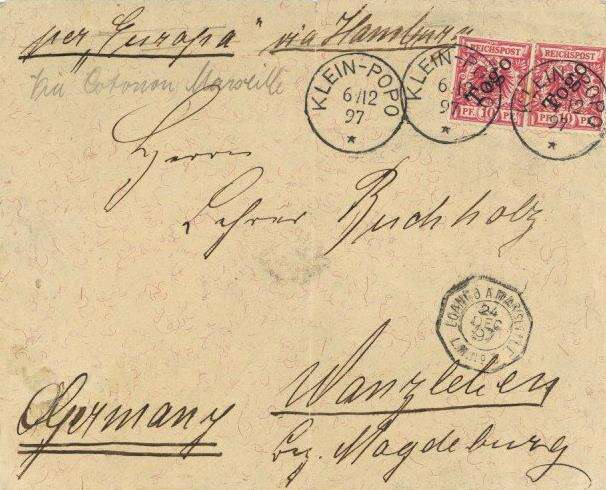 per „Europa“ via Hamburg
via Cotonou Marseille
REICHSPOST REICHSPOST
Togo Togo
PF. 10 PF. PF. 10 PF.
KLEIN-POPO
6/12
97
*
KLEIN-POPO
6/12
97
*
KLEIN-POPO
12
97
*
Herrn
Lehrer Buchholz
LOANGO A MARSEILLE
24
DEC
97
Wanzleben
Germany
bz. Magdeburg